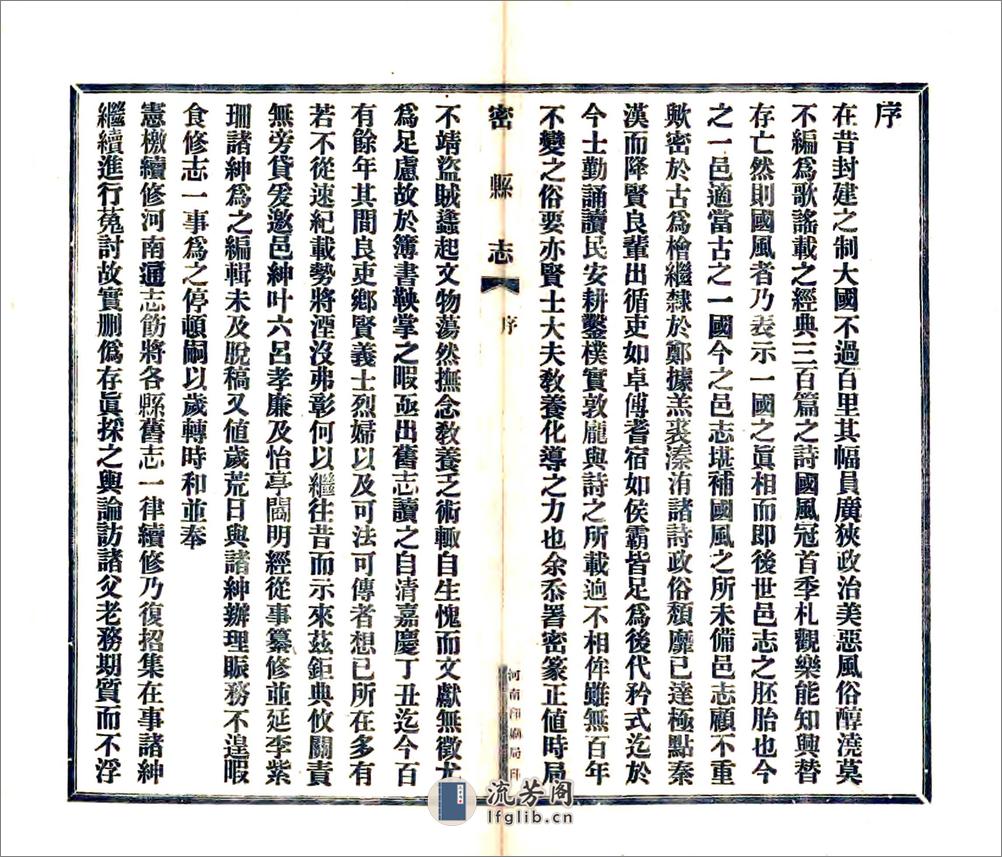 序
在昔封建之制大國不過百里其幅員廣狹政治美惡風俗醇澆莫
不編爲歌謠載之經典三百篇之詩國風冠首季札觀樂能知興替
存亡然則國風者乃表示一國之眞相而即後世邑志之胚胎也今
之一邑適當古之一國今之邑志堪補國風之所未備邑志顧不重
歟密於古爲檜繼隸於鄭據羔裘溱洧諸詩政俗頹靡已達極點秦
漢而降賢良輩出循吏如卓傅耆宿如侯霸皆足爲後代矜式迄於
今士勤誦讀民安耕鑿樸實敦龐與詩之所載逈不相侔雖無百年
不變之俗要亦賢士大夫敎養化導之力也余忝署密篆正値時局
密縣志 序
河南印刷局印
不靖盜賊蠭起文物蕩然撫念敎養乏術輙自生愧而文獻無徵尤
爲足慮故於簿書鞅掌之暇亟出舊志讀之自清嘉慶丁丑迄今百
有餘年其間良吏鄕賢義士烈婦以及可法可傳者想已所在多有
若不從速紀載勢將湮沒弗彰何以繼往昔而示來茲鉅典攸關責
無旁貸爰邀邑紳叶六呂孝廉及怡亭閻明經從事纂修並延李紫
珊諸紳爲之編輯未及脫稿又値歲荒日與諸紳辦理賑務不遑暇
食修志一事爲之停頓嗣以歲轉時和並奉
憲檄續修河南通志飭將各縣舊志一律續修乃復招集在事諸紳
繼續進行蒐討故實删僞存眞採之輿論訪諸父老務期質而不浮
流芳阁
lfglib.cn